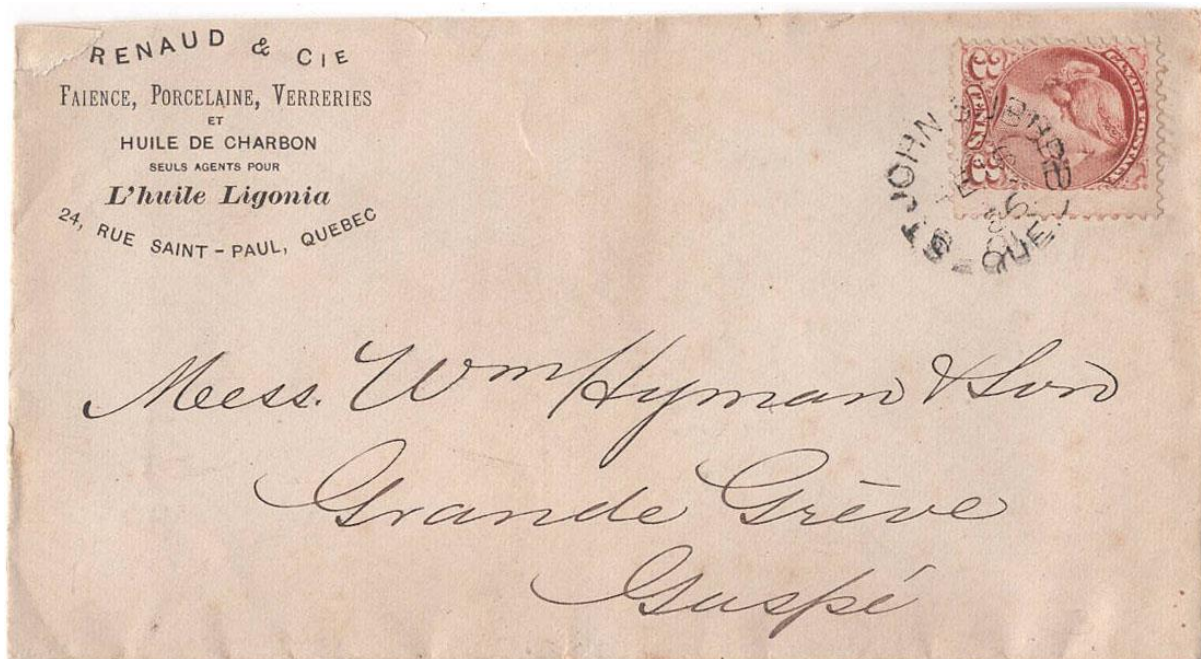 RENAUD & CIE
FAIENCE, PORCELAINE, VERRERIES
ET
HUILE DE CHARBON
SEULS AGENTS POUR
L'huile Ligonia
24, RUE SAINT-PAUL, QUEBEC
ST JOHN SUBURB
QUE
3 3
Mess. Wm Hyman & Son
Grande Grève
Gaspé